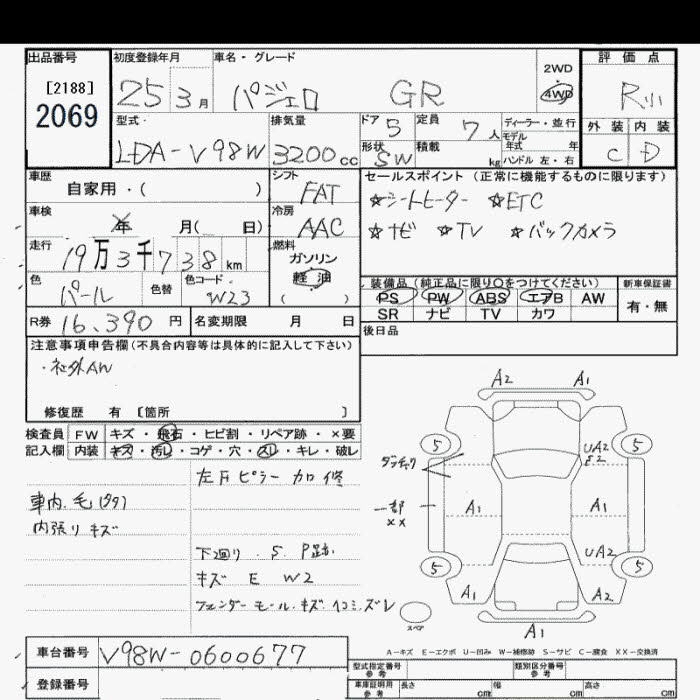 出品番号 初度登録年月 車名・グレード 評価点
[2188] 25 3月 パジェロ GR 2WD 4WD R小
2069
型式 排気量 ドア 5 定員 7人 ディーラー・並行 外装 内装
モデル年式 年
LDA-V98W 3200cc 形状 SW 積載 kg ハンドル 左・右 C D
車歴 シフト セールスポイント(正常に機能するものに限ります)
自家用・( ) FAT ☆シートヒーター ☆ETC
車検 年 月( 日) 冷房 AAC ☆ナビ ☆TV ☆バックカメラ
走行 19万3千738km 燃料 ガソリン
軽油
( )
色 パール 色替 色コード W23 装備品(純正品に限り○をつけてください) 新車保証書
PS PW ABS エアB AW 有・無
SR ナビ TV カワ
R券 16,390円 名変期限 月 日 後日品
注意事項申告欄(不具合内容等は具体的に記入して下さい)
・社外AW
修復歴 有 [箇所 ]
検査員 FW キズ・飛石・ヒビ割・リペア跡・×要
記入欄 内装 キズ・汚レ・コゲ・穴・スレ・キレ・破レ
左Fピラー カロ修
車内毛(タタ)
内張りキズ
下廻り . S P跡
キズ E W2
フェンダーモール キズ ズレ
A2 A1
5 5
UA2
一部 A1 A1
××
UA2
5 5
A1 A2
スペア
A1
A-キズ E-エクボ U-凹み W-補修跡 S-サビ C-腐食 XX-交換済
車台番号 V98W-0600677
型式指定番号 参考 類別区分番号 参考
登録番号 車庫証明用 参考 長さ cm 幅 cm 高さ cm